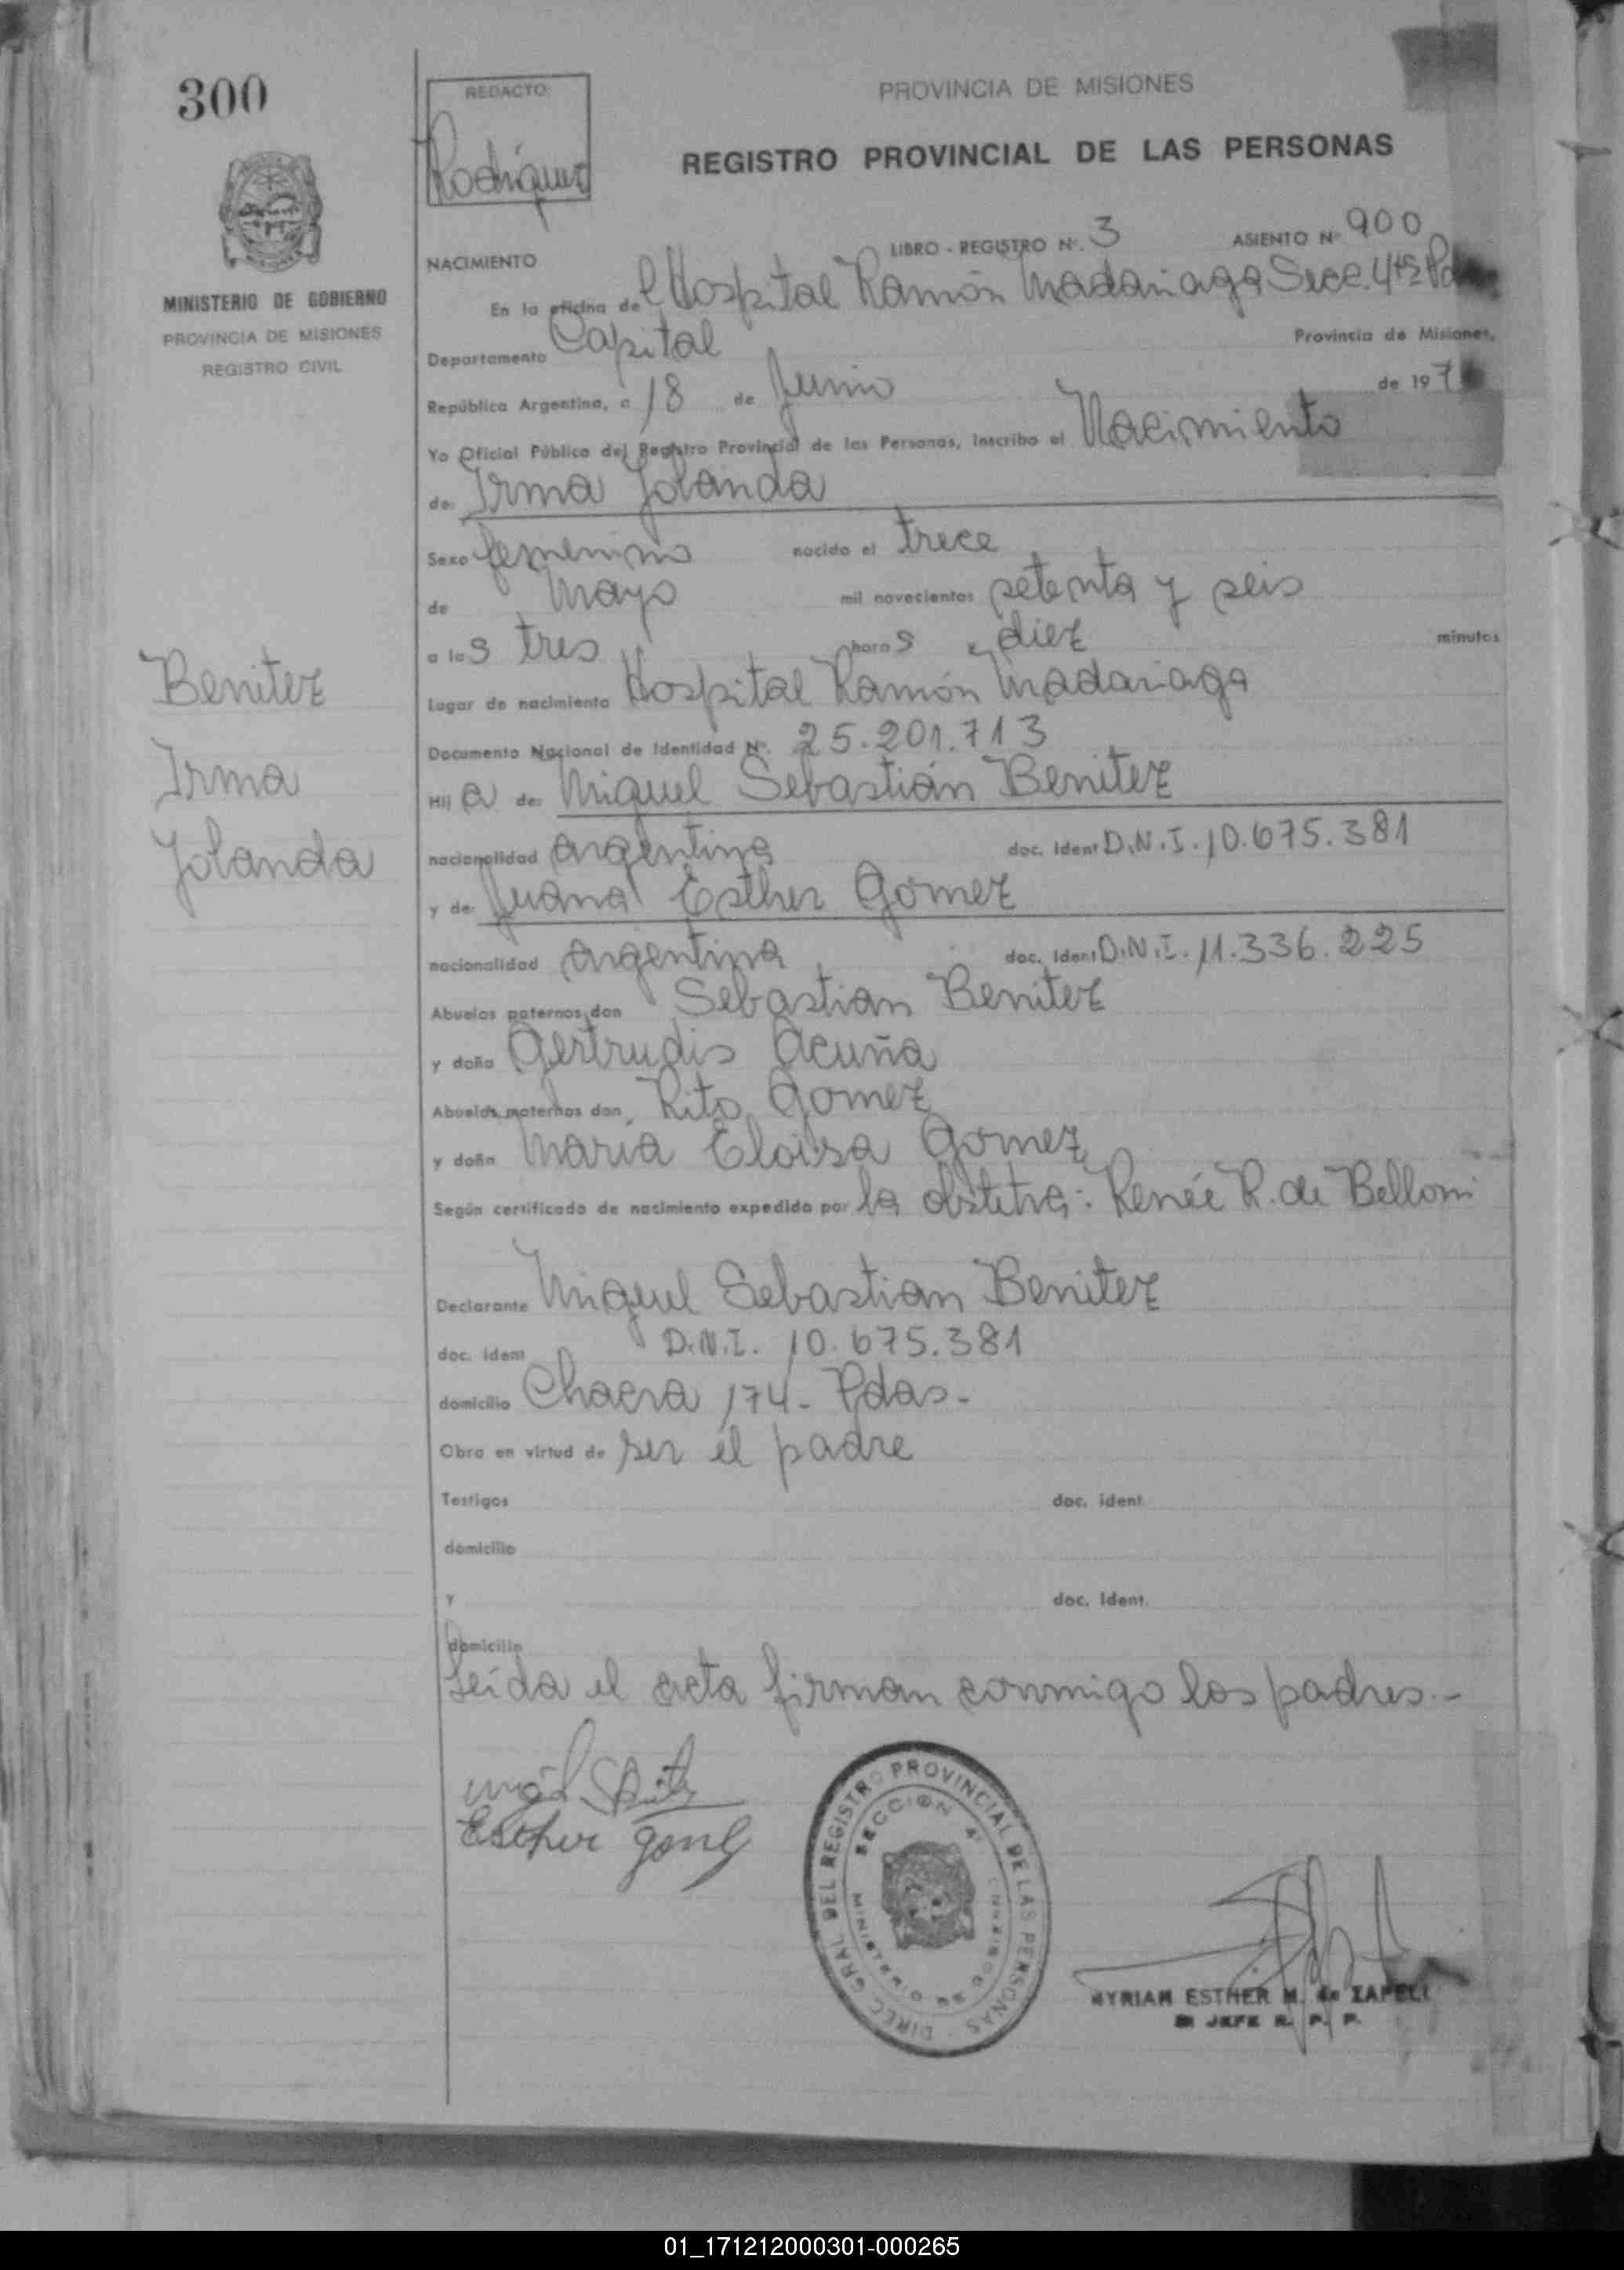 300
REDACTO
Rodríguez
PROVINCIA DE MISIONES
REGISTRO PROVINCIAL DE LAS PERSONAS
MINISTERIO DE GOBIERNO
PROVINCIA DE MISIONES
REGISTRO CIVIL
LIBRO - REGISTRO Nº. 3 ASIENTO Nº 900
NACIMIENTO
En la oficina del Hospital Ramón Madariaga Secc. 4ta
Departamento Capital Provincia de Misiones,
República Argentina, a 18 de Junio de 197
Yo Oficial Público del Registro Provincial de las Personas, inscribo el Nacimiento
de: Irma Yolanda
Sexo femenino nacido el trece
de Mayo mil novecientos setenta y seis
a las tres horas diez minutos
Lugar de nacimiento Hospital Ramón Madariaga
Documento Nacional de Identidad Nº. 25.201.713
Hija de: Miguel Sebastián Benitez
nacionalidad argentina doc. Ident D.N.I. 10.675.381
y de: Juana Esther Gomez
nacionalidad argentina doc. Ident D.N.I. 11.336.225
Abuelos paternos don Sebastian Benitez
y doña Gertrudis Acuña
Abuelos maternos don Rito Gomez
y doña María Eloisa Gomez
Según certificado de nacimiento expedido por la obstetra: Renée R. de Belloni
Declarante Miguel Sebastian Benitez
doc. ident D.N.I. 10.675.381
domicilio Chacra 174- Pdas-
Obra en virtud de ser el padre
Testigos doc. ident.
domicilio
Y doc. Ident.
domicilio
Leída el acta firman conmigo los padres.-
Benitez
Irma
Yolanda
Esther
DIREC. GRAL. DEL REGISTRO PROVINCIAL DE LAS PERSONAS
SECCION 4ª
MINISTERIO DE GOBIERNO
MYRIAM ESTHER M. de ZAPELI
JEFE R. P. P.
01_171212000301-000265